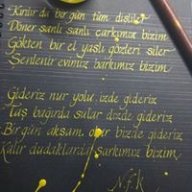 Kırılır da bir gün tüm dişliler
Döner şanlı şanlı çarkımız bizim
Gökten bir el yaşlı gözleri siler
Şenlenir evimiz barkımız bizim
Gideriz nur yolu izde gideriz
Taş bağırda sular dizde gideriz
Bir gün akşam olur bizde gideriz
Kalır dudaklarda şarkımız bizim
N.F.K